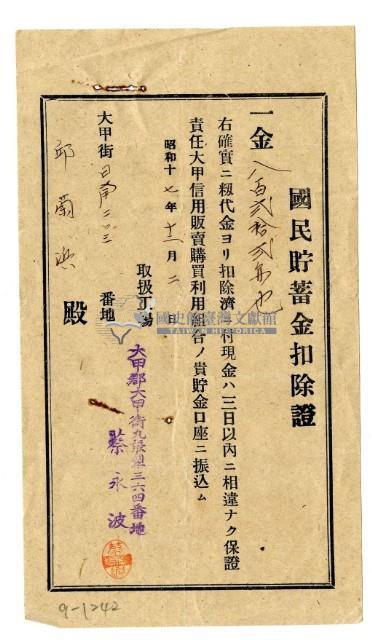 國民貯蓄金扣除證
一金八百貳拾貳
右確實ニ籾代金ヨリ扣除濟付現金ハ三日以內ニ相違ナク保證
責任大甲信用販賣購買利用組合ノ貴貯金口座ニ振込ム
昭和十七年十二月二日
取扱工場
大甲郡大甲街九張犁三六四番地
蔡永波
大甲街日南二三 番地
邱菊 殿
國史館臺灣文獻館
TAIWAN HISTORICA
9-1242